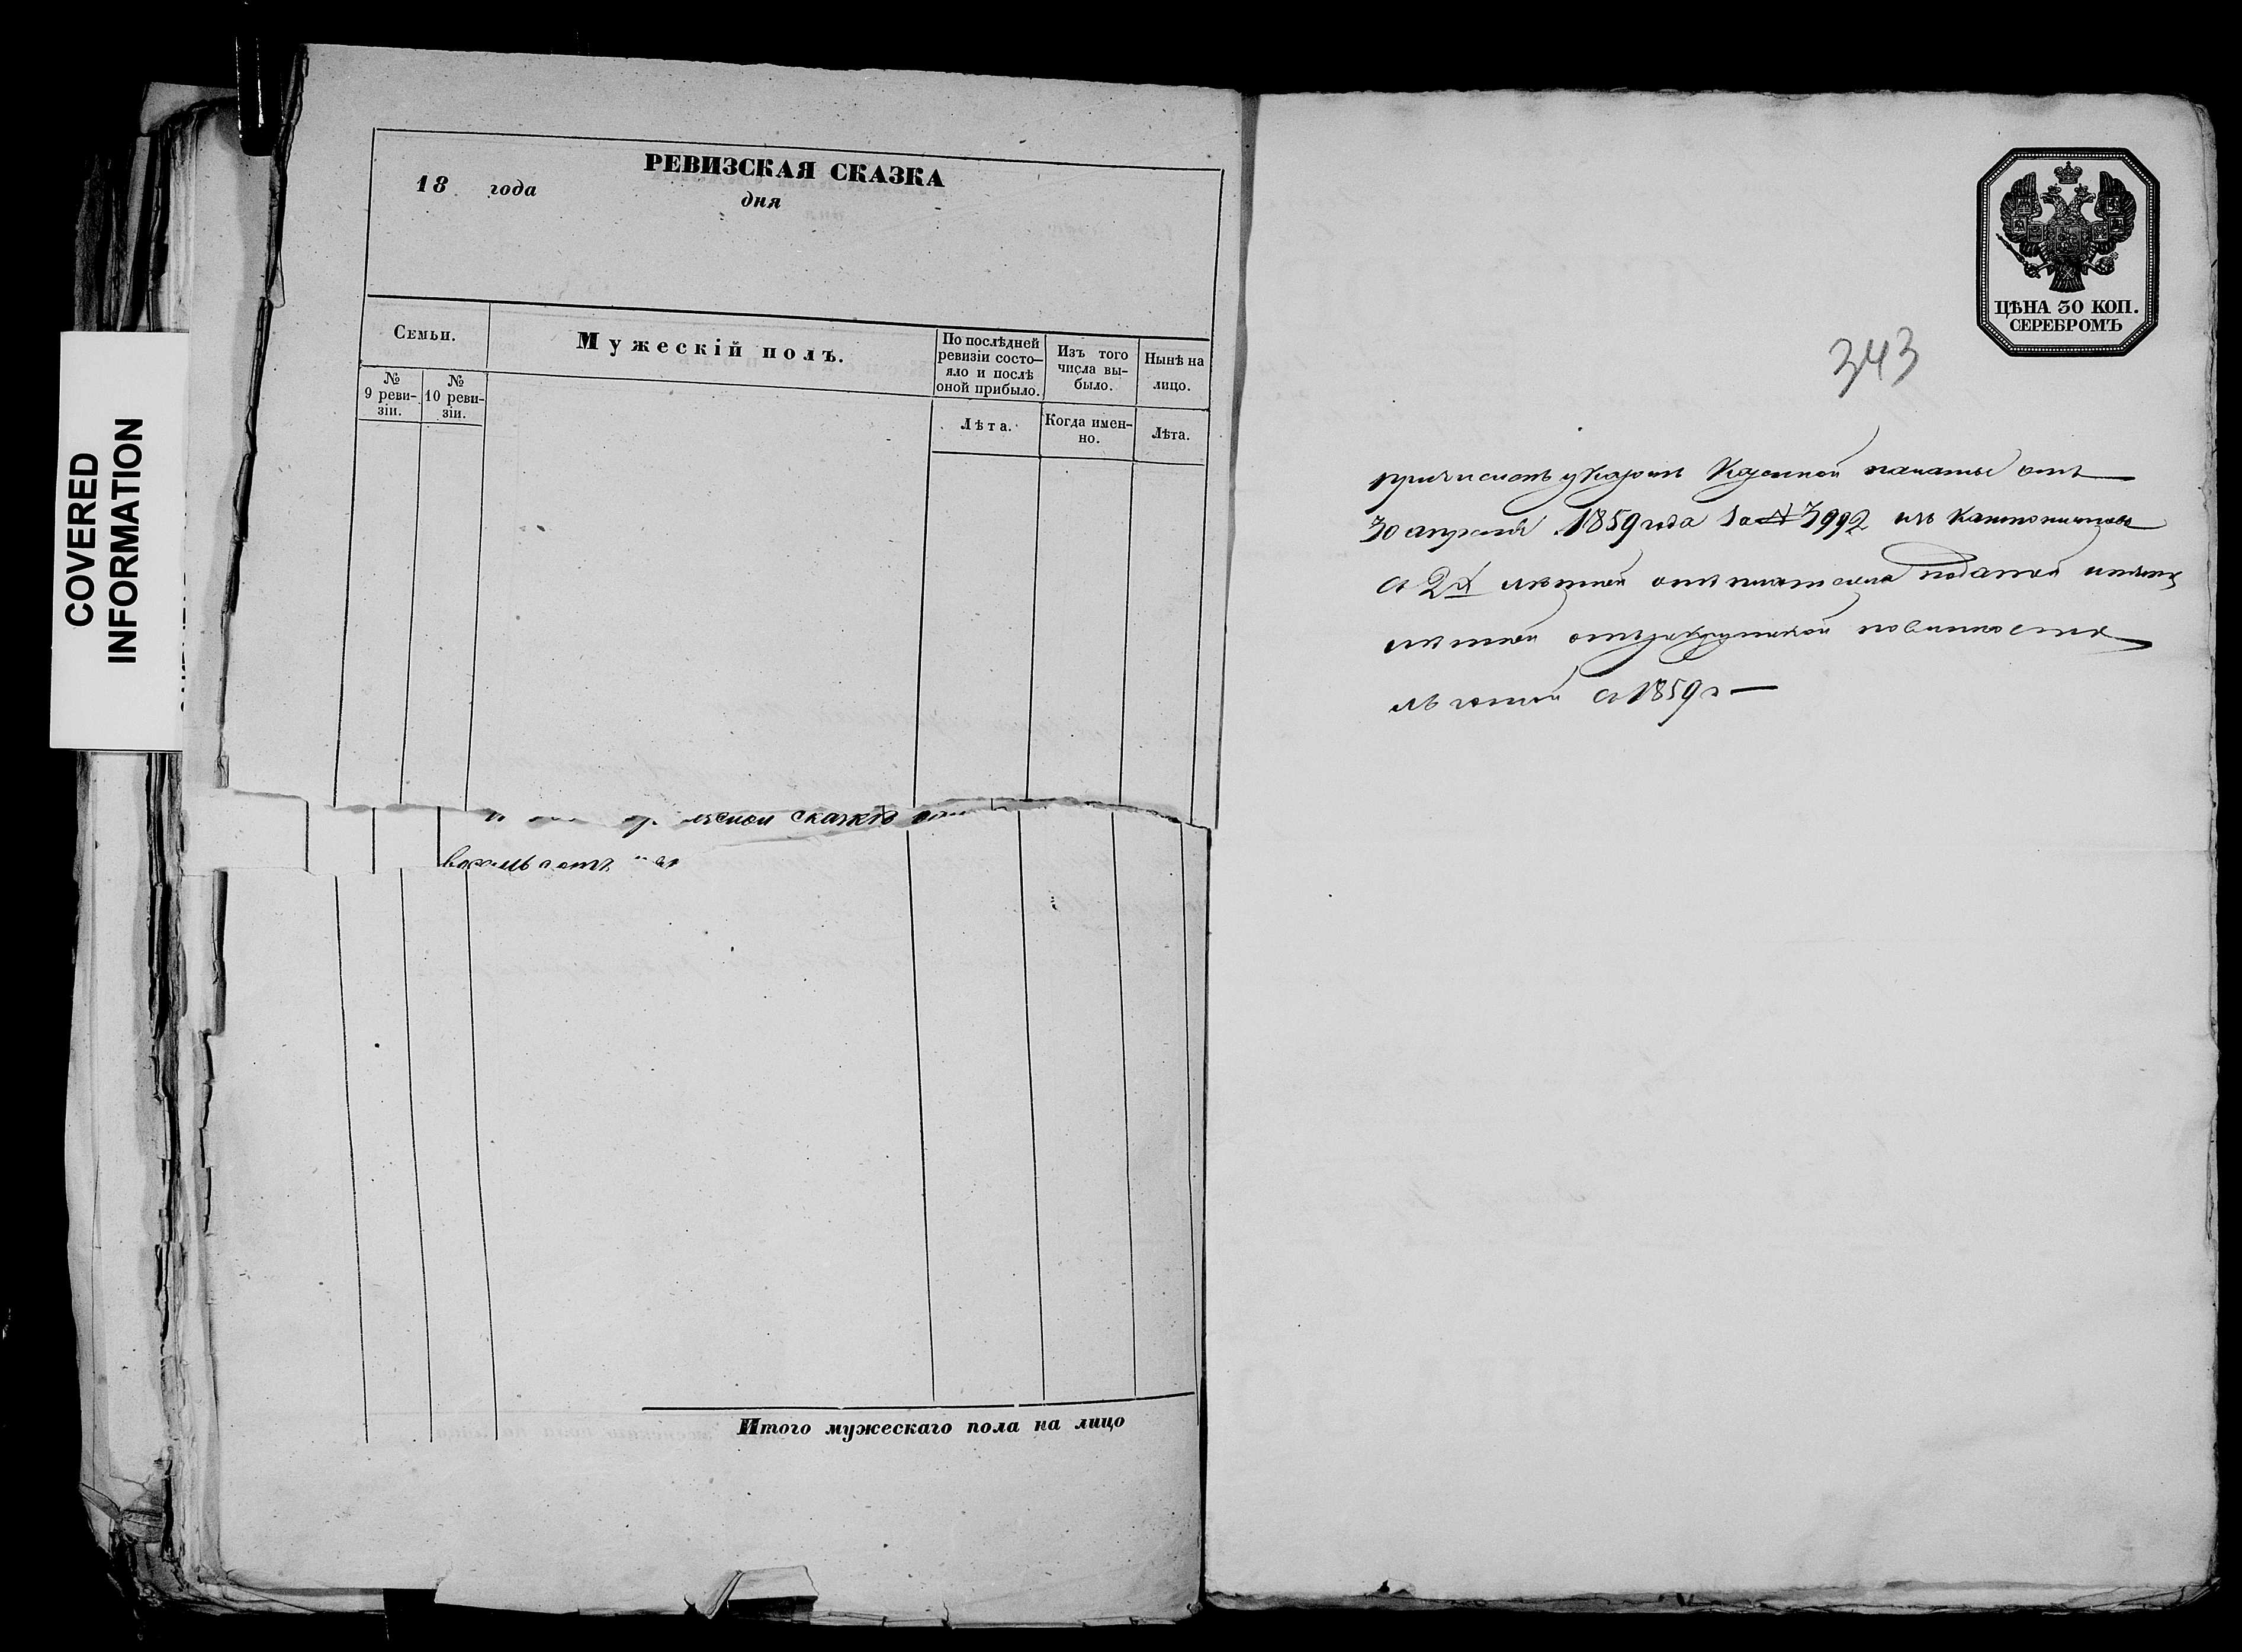 COVERED
INFORMATION
РЕВИЗСКАЯ СКАЗКА
18 года дня
Семьи.
Мужескій полъ.
По послѣдней
ревизіи состо-
яло и послѣ
оной прибыло.
Изъ того
числа вы-
было.
Нынѣ на
лицо.
№
9 реви-
зіи.
№
10 реви-
зіи.
Лѣта.
Когда имен-
но.
Лѣта.
сказкѣ
Итого мужескаго пола на лицо
ЦѢНА 30 КОП.
СЕРЕБРОМЪ
343
причисленъ указомъ Казенной палаты отъ
30 апрѣля 1859 года за № 3992 изъ кантонистовъ
съ 2х лѣтней отъ платежа податей и
лѣтней отъ рекрутской повинности
льготой съ 1859 г